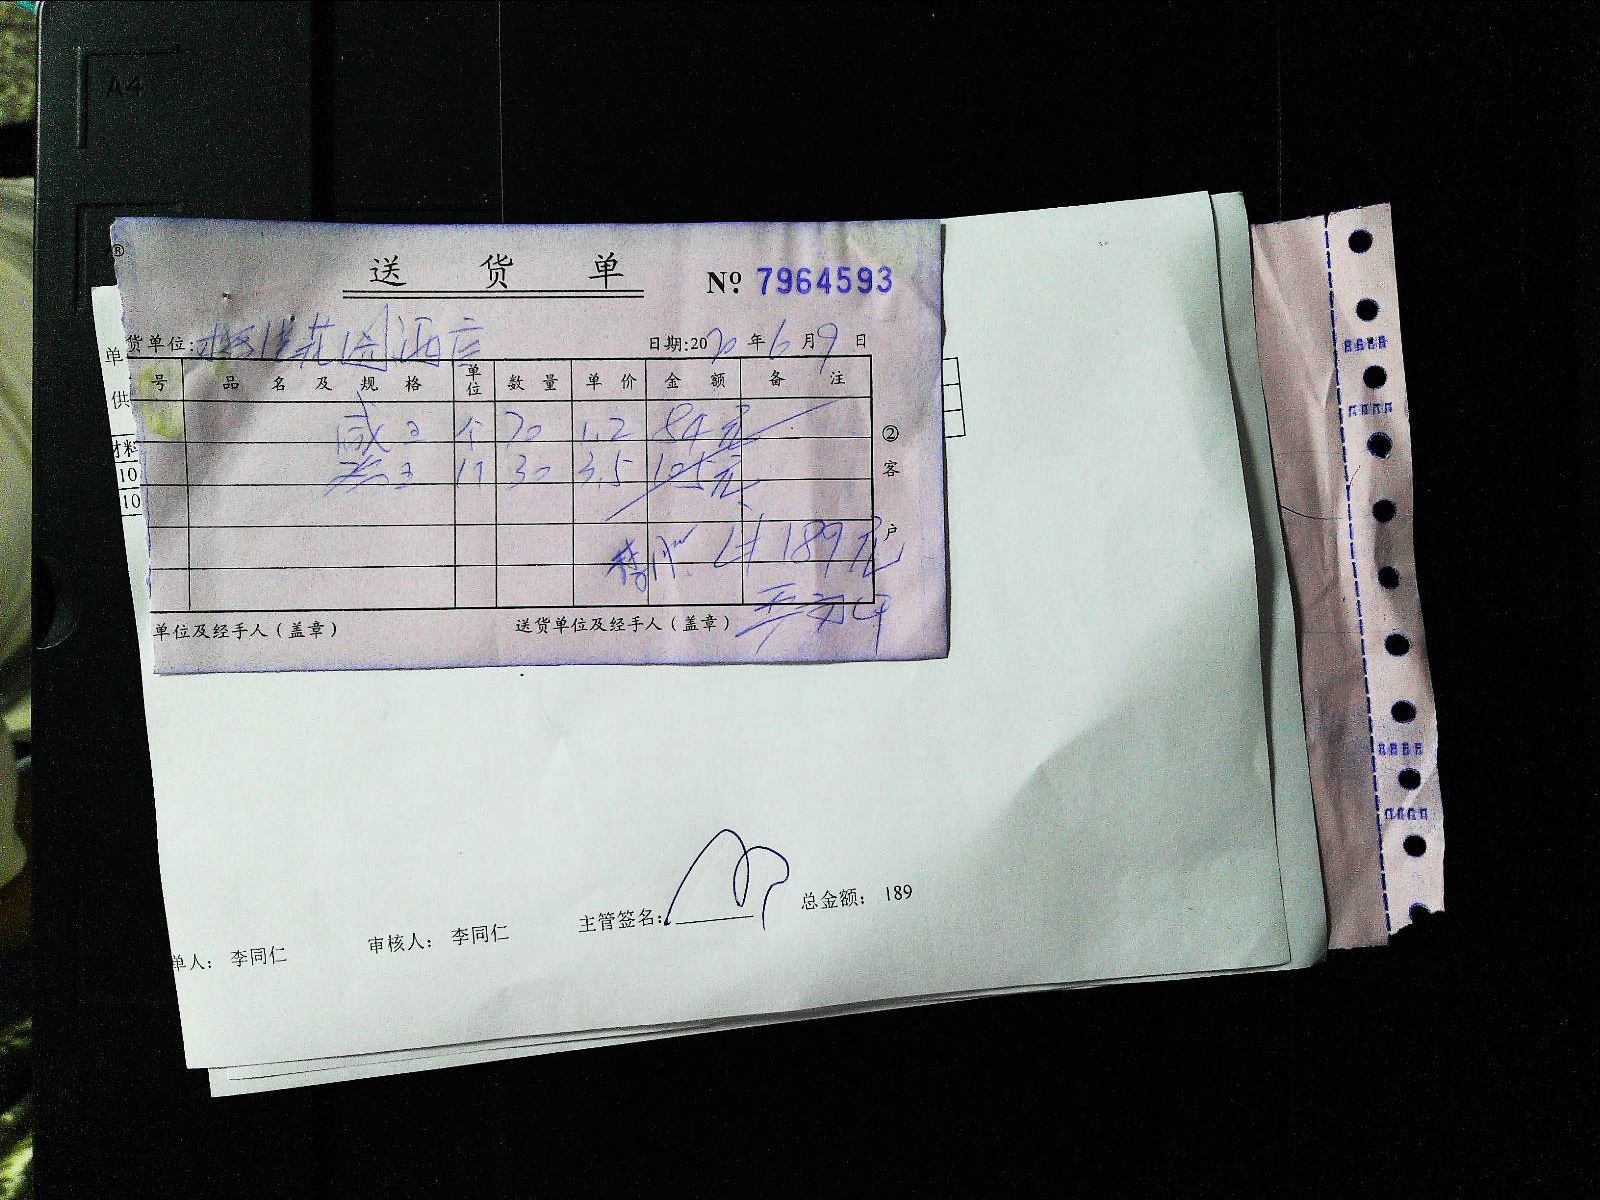 A4
®
送货单
№ 7964593
货单位: 花园酒店
日期:2020年6月9日
号 品名及规格 单位 数量 单价 金额 备注
个 70 1.2 84元
30 3.5 105元
计189元
②客户
单位及经手人(盖章)
送货单位及经手人(盖章)
单
供
材料
10
10
单人: 李同仁
审核人: 李同仁
主管签名:
总金额: 189